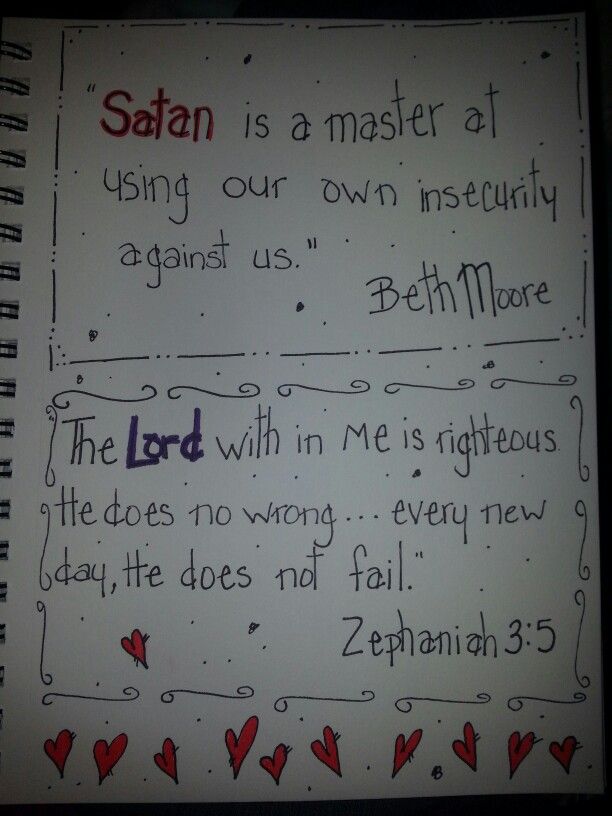 "Satan is a master at
using our own insecurity
against us."
Beth Moore
The Lord with in me is righteous.
He does no wrong... every new
day, He does not fail."
Zephaniah 3:5